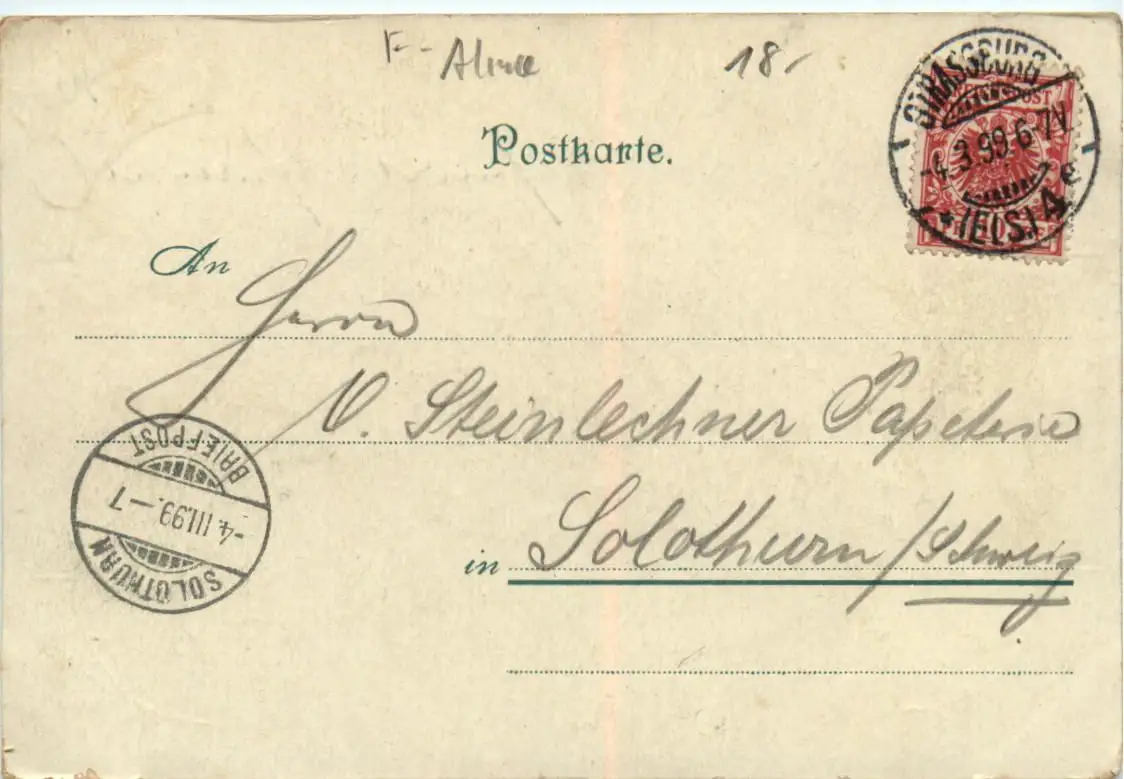 F-
18.-
Postkarte.
STRASSBURG
-4.3.99.6-7V.
* (ELS.) 4 e
REICHSPOST
An
Herrn
V. Steinlechner Papeterie
in Solothurn / Schweiz
BRIEFPOST
-4.III.99.-7
SOLOTHURN